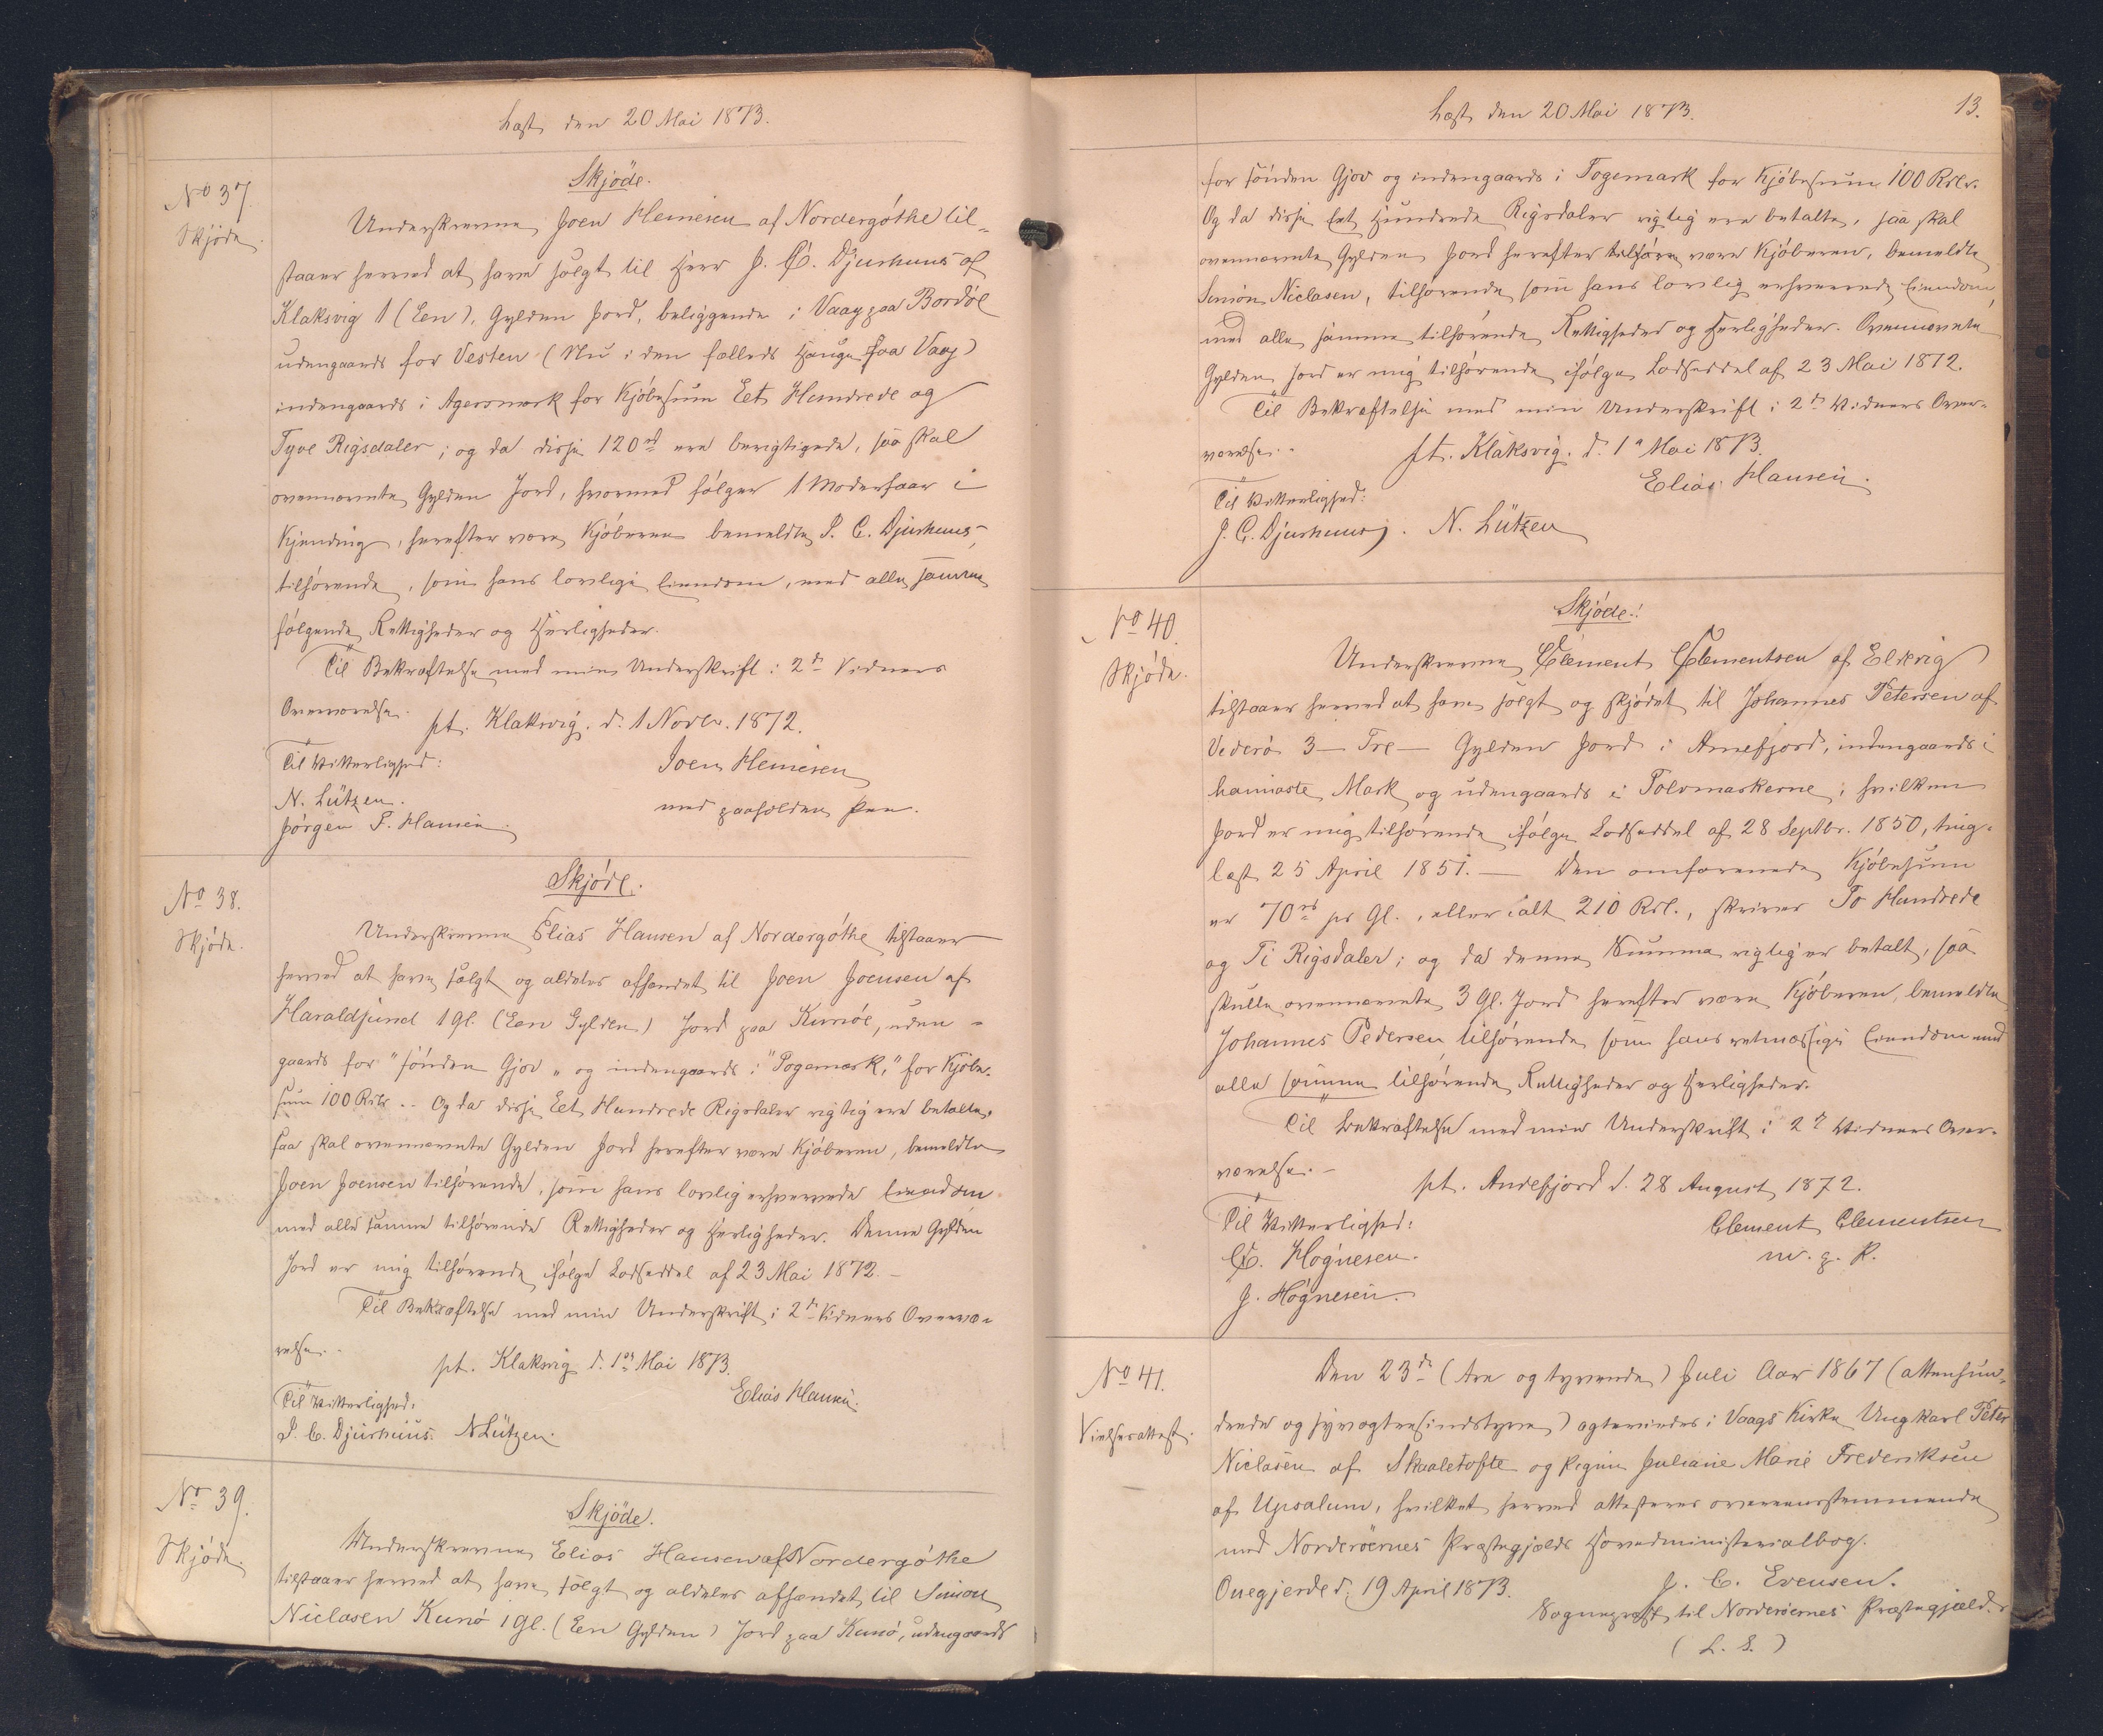 Læst den 20 Mai 1873.
No 37.
Skjøde.
Skjøde.
Underskrevne Joen Heinesen af Nordergøthe til-
staaer herved at have solgt til Herr J. C. Djurhuus af
Klaksvig 1 (Een), Gylden Jord, beliggende i Vaag paa Bordöe
udengaards for Vesten (Nu i den fælleds Hauge paa Vaag)
indengaards i Agersmark for Kjøbesum Eet Hundrede og
Tyve Rigsdaler; og da disse 120 rd ere berigtigede, saa skal
ovennævnte Gylden Jord, hvormed følger 1 Moderfaar i
Kjending, herefter være Kjøberen bemeldte J. C. Djurhuus
tilhørende, som hans lovlige Eiendom, med alle samme
følgende Rettigheder og Herligheder.
Til Bekræftelse med min Underskrift i 2de Vidners
Overværelse.
pt. Klaksvig. d. 1 Novbr. 1872.
Til Vitterlighed:
Joen Heinesen
N. Lützen.
med paaholden Pen.
Jørgen P. Hansen
No 38.
Skjøde.
Skjøde.
Underskrevne Elias Hansen af Nordergøthe tilstaaer
herved at have solgt og aldeles afhændet til Joen Joensen af
Haraldsund 1 gl. (Een Gylden) Jord paa Kunöe, uden-
gaards for "sønden Gjov" og indengaards i "Togemark," for Kjøbe-
sum 100 Rdlr. Og da disse Eet Hundrede Rigsdaler rigtig ere betalte,
saa skal ovennævnte Gylden Jord herefter være Kjøberen, bemeldte
Joen Joensen tilhørende, som hans lovlig erhvervede Eiendom
med alle samme tilhørende Rettigheder og Herligheder. Denne Gylden
Jord er mig tilhørende ifølge Lodseddel af 23 Mai 1872.-
Til Bekræftelse med min Underskrift i 2de Vidners Overvæ-
relse.
pt. Klaksvig d. 1ste Mai 1873.
Til Vitterlighed:
Elias Hansen.
J. C. Djurhuus. N Lützen.
No 39.
Skjøde.
Skjøde.
Underskrevne Elias Hansen af Nordergøthe
tilstaaer herved at have solgt og aldeles afhændet til Simon
Niclasen Kunø 1 gl. (Een Gylden) Jord paa Kunø, udengaards
Læst den 20 Mai 1873.
13.
for sønden Gjov og indengaards i Togemark for Kjøbesum 100 Rdlr.
Og da disse Eet Hundrede Rigsdaler rigtig ere betalte, saa skal
ovennævnte Gylden Jord herefter tilhøre være Kjøberen, bemeldte
Simon Niclasen, tilhørende som hans lovlig erhvervede Eiendom,
med alle samme tilhørende Rettigheder og Herligheder. Ovennævnte
Gylden Jord er mig tilhørende ifølge Lodseddel af 23 Mai 1872.
Til Bekræftelse med min Underskrift i 2de Vidners Over-
værelse.
pt. Klaksvig. d. 1 Mai 1873.
Elias Hansen.
Til Vitterlighed:
J. C. Djurhuus. N. Lützen
No 40.
Skjøde.
Skjøde:
Underskrevne Clement Clementsen af Eldevig
tilstaaer herved at have solgt og skjødet til Johannes Petersen af
Viderö 3 - Tre - Gylden Jord i Arnefjord, indengaards i
Mark og udengaards i Tolvmarkerne; hvilken
Jord er mig tilhørende ifølge Lodseddel af 28 Septbr. 1850, ting-
læst 25 April 1851. - Den omforenede Kjøbesum
er 70 rd pr Gl., eller ialt 210 Rdl., skriver To Hundrede
og Ti Rigsdaler; og da denne Summa rigtig er betalt, saa
skulle ovennævnte 3 Gl. Jord herefter være Kjøberen, bemeldte
Johannes Pedersen tilhørende som hans retmæssige Eiendom med
alle samme tilhørende Rettigheder og Herligheder.
Til Bekræftelse med min Underskrift i 2de Vidners Over-
værelse. -
pt. Andefjord d. 28 August 1872.
Til Vitterlighed:
Clement Clementsen
C. Høgnesen.
m. p. P.
J. Høgnesen.
No 41.
Vielsesattest.
Den 23de (tre og tyvende) Juli Aar 1867 (attenhun-
drede og syvogtresindstyve) ægteviedes i Vaags Kirke Ungkarl Peter
Niclasen af Skaaletofte og Pigen Juliane Marie Frederiksen
af Upsalum, hvilket herved attesteres overeensstemmende
med Norderöernes Præstegjælds Hovedministerialbog.
Onegjerde d. 19 April 1873.
J. C. Evensen.
Sognepræst til Norderöernes Præstegjæld.
(L. S.)